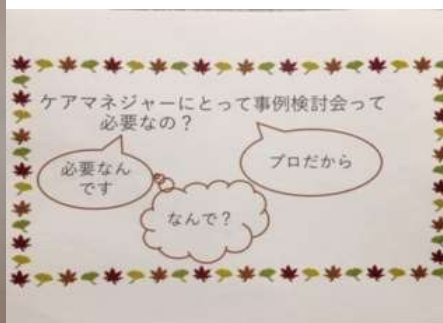 ケアマネジャーにとって事例検討会って
必要なの？
必要なん
です
プロだから
なんで？